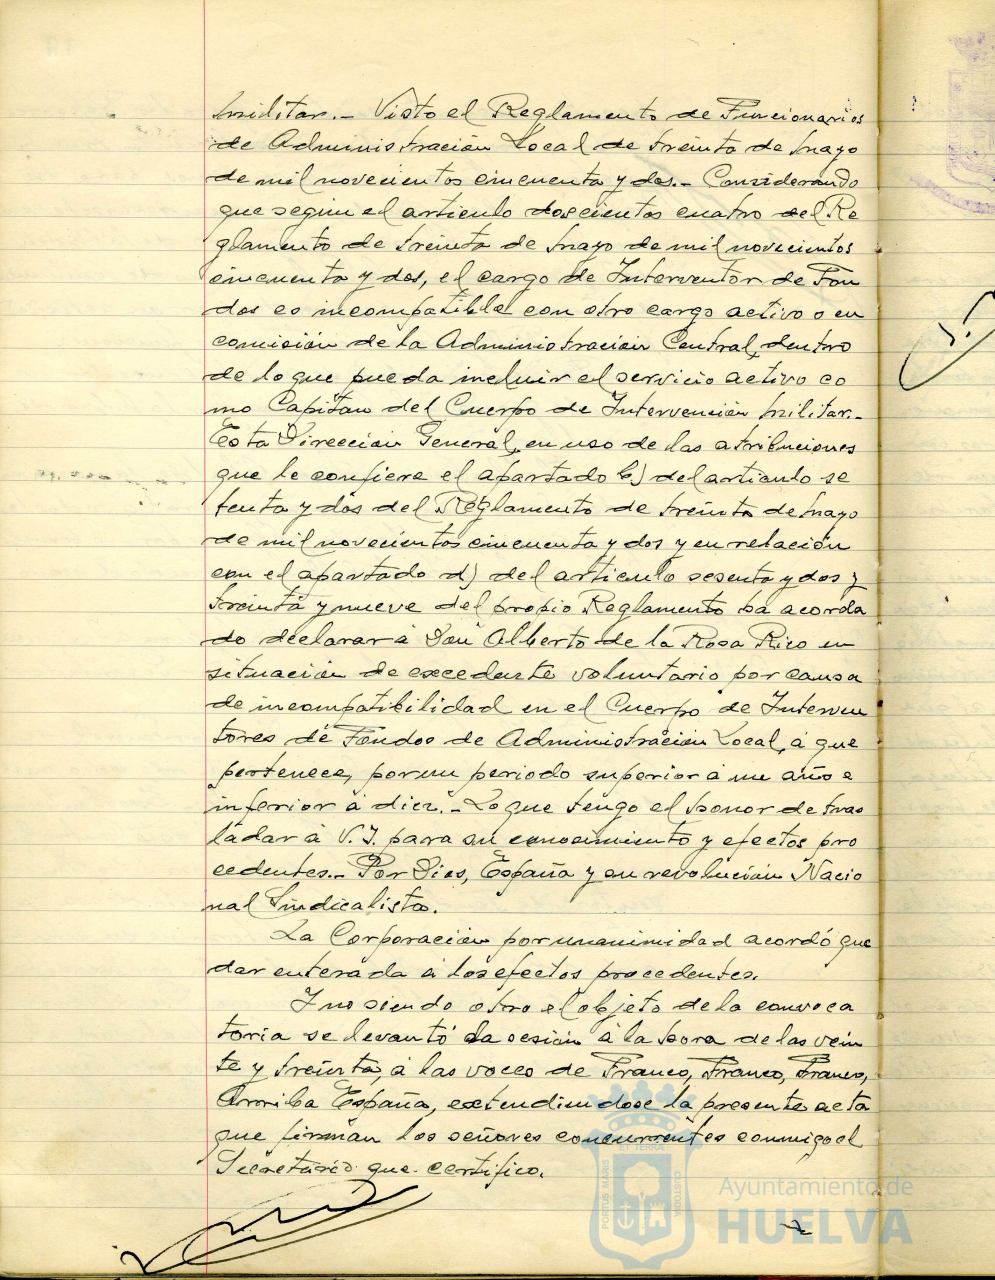 Militar.- Visto el Reglamento de Funcionarios
de Administración Local de treinta de Mayo
de mil novecientos cincuenta y dos.- Considerando
que segun el articulo doscientos cuatro del Re
glamento de treinta de Mayo de mil novecientos
cincuenta y dos, el cargo de Interventor de Fon
dos es incompatible con otro cargo activo o en
comisión de la Administración Central, dentro
de lo que pueda incluir el servicio activo co
mo Capitan del Cuerpo de Intervención Militar.-
Esta Dirección General, en uso de las atribuciones
que le confiere el apartado b) del articulo se
tenta y dos del Reglamento de treinta de Mayo
de mil novecientos cincuenta y dos y en relación
con el apartado d) del articulo sesenta y dos y
treinta y nueve del propio Reglamento ha acorda
do declarar á Don Alberto de la Rosa Rico en
situación de excedente voluntario por causa
de incompatibilidad en el Cuerpo de Interven
tores de Fondos de Administración Local, á que
pertenece, por un periodo superior á un año e
inferior á diez.- Lo que tengo el honor de tras
ladar á V.I. para su conocimiento y efectos pro
cedentes.- Por Dios, España y su revolución Nacio
nal Sindicalista.
La Corporación por unanimidad acordó que
dar enterada á los efectos procedentes.
Y no siendo otro el objeto de la convoca
toria se levantó la sesión á la hora de las vein
te y treinta, á las voces de Franco, Franco, Franco,
Arriba España, extendiendose la presente acta
que firman los señores concurrentes conmigo el
Secretario que certifico.
PORTUS MARIS
ET TERRÆ
CUSTODIA
Ayuntamiento de
HUELVA